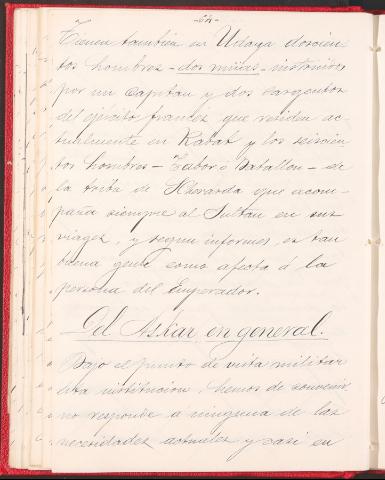 Tienen tambien en Udaya doscien-
tos hombres - dos mias - instruidos
por un Capitan y dos sargentos
del ejército francés que residen ac-
tualmente en Rabat y los seiscien-
tos hombres - Tabor ó batallon - de
la tribu de Xerarda que acom-
paña siempre al Sultan en sus
viages, y segun informes, es tan
buena gente como afecta á la
persona del Emperador.
Del Askar en general.
Bajo el punto de vista militar
esta institucion, hemos de convenir
no responde a ninguna de las
necesidades actuales y casi en